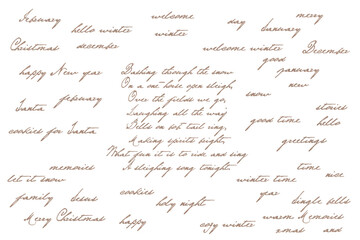 February
welcome
merry
hello winter
day
January
winter
Christmas december
welcome winter
December
good
happy New year
Dashing through the snow
january
On a one horse open sleigh,
new
february
Over the fields we go,
snow
Santa
Laughing all the way
stories
Bells on bob tail ring,
good time
hello
cookies for Santa
Making spirits bright,
greetings
What fun it is to ride and sing
memories
A sleighing song tonight.
winter
nice
let it snow
time
cookies
year
family
Jesus
holy night
Jingle bells
Merry Christmas
happy
warm Memories
cozy winter
xmas and